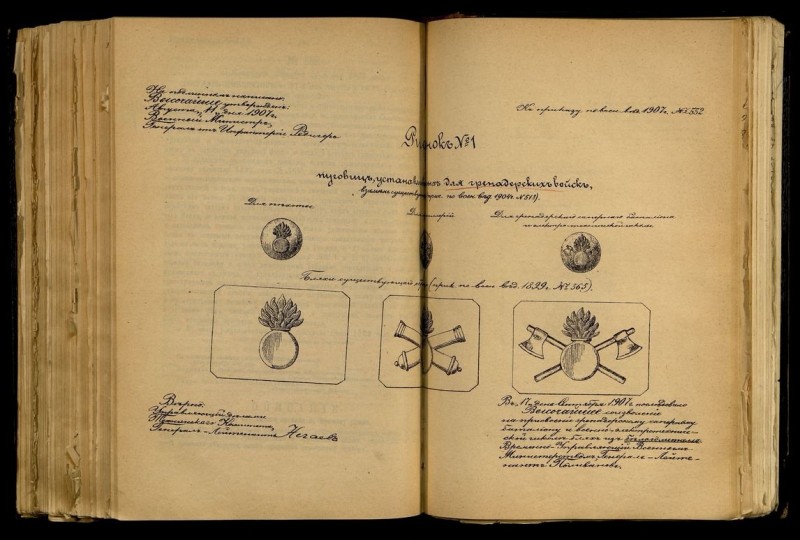 На подлинномъ написано:
Высочайше утвержденъ
Августа 11 дня 1907 г.
Военный Министръ,
Генералъ отъ Инфантеріи Редигеръ
Къ приказу по воен. вѣд. 1907 г. № 552
Рисунокъ №1
пуговицъ, установленныхъ для гренадерскихъ войскъ,
взамѣнъ существующихъ по воен. вѣд. 1904 г. № 511).
Для пѣхоты
Для гренадерскаго сапернаго баталіона
и электро-технической школы
Бляхи существующей (прик. по воен. вѣд. 1899 г. № 365).
Вѣрно:
Управляющій дѣлами
Комитета,
Генералъ-Лейтенантъ Нечаевъ
Въ 17 день Сентября 1907 г. послѣдовало
Высочайшее соизволеніе
на присвоеніе гренадерскому саперному
баталіону и военно-электротехниче-
ской школѣ бляхъ изъ
Временно-Управляющій Военнымъ
Министерствомъ, Генералъ-Лейте-
нантъ Поливановъ.